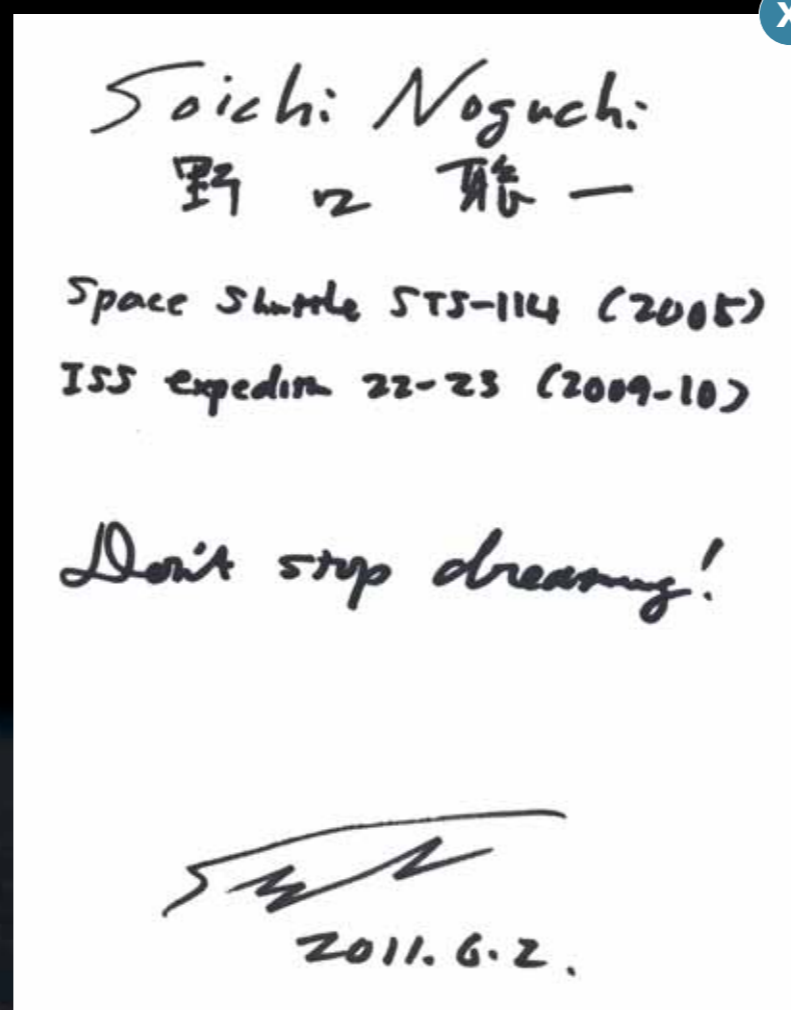 Soichi Noguchi
野口聡一
Space Shuttle STS-114 (2005)
ISS expedition 22-23 (2009-10)
Don't stop dreaming!
2011.6.2.
X